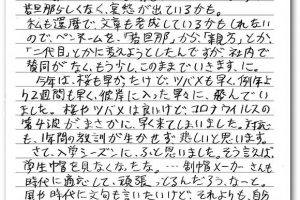 若旦那らしくなく、哀愁が出ているかも。
私も還暦で、文章も老成しているかもしれない
ので、ペンネームを、「若旦那」が、「親方」とか、
「二代目」とかに変えようとしたんですが、社内で
賛同がなく、もう少し、このままでいきます、に。
今年は、桜も早かったけど、ツバメも早く、例年よ
り2週間も早く、彼岸に入った早々に、飛んでい
ました。桜やツバメは良いけど、コロナウイルスの
第4波が、まさかに、早く来てしまいました。対応
も、1年間の教訓が生かせず、悲しいと思います。
さて、入学シーズンに、ふっと思いました。そう言えば、
学生帽を見なくなったな。…制帽メーカーさんも
時代に適応して、頑張ってるんだろうなーと。
時代に文句も言いたいけど、それよりも、自分